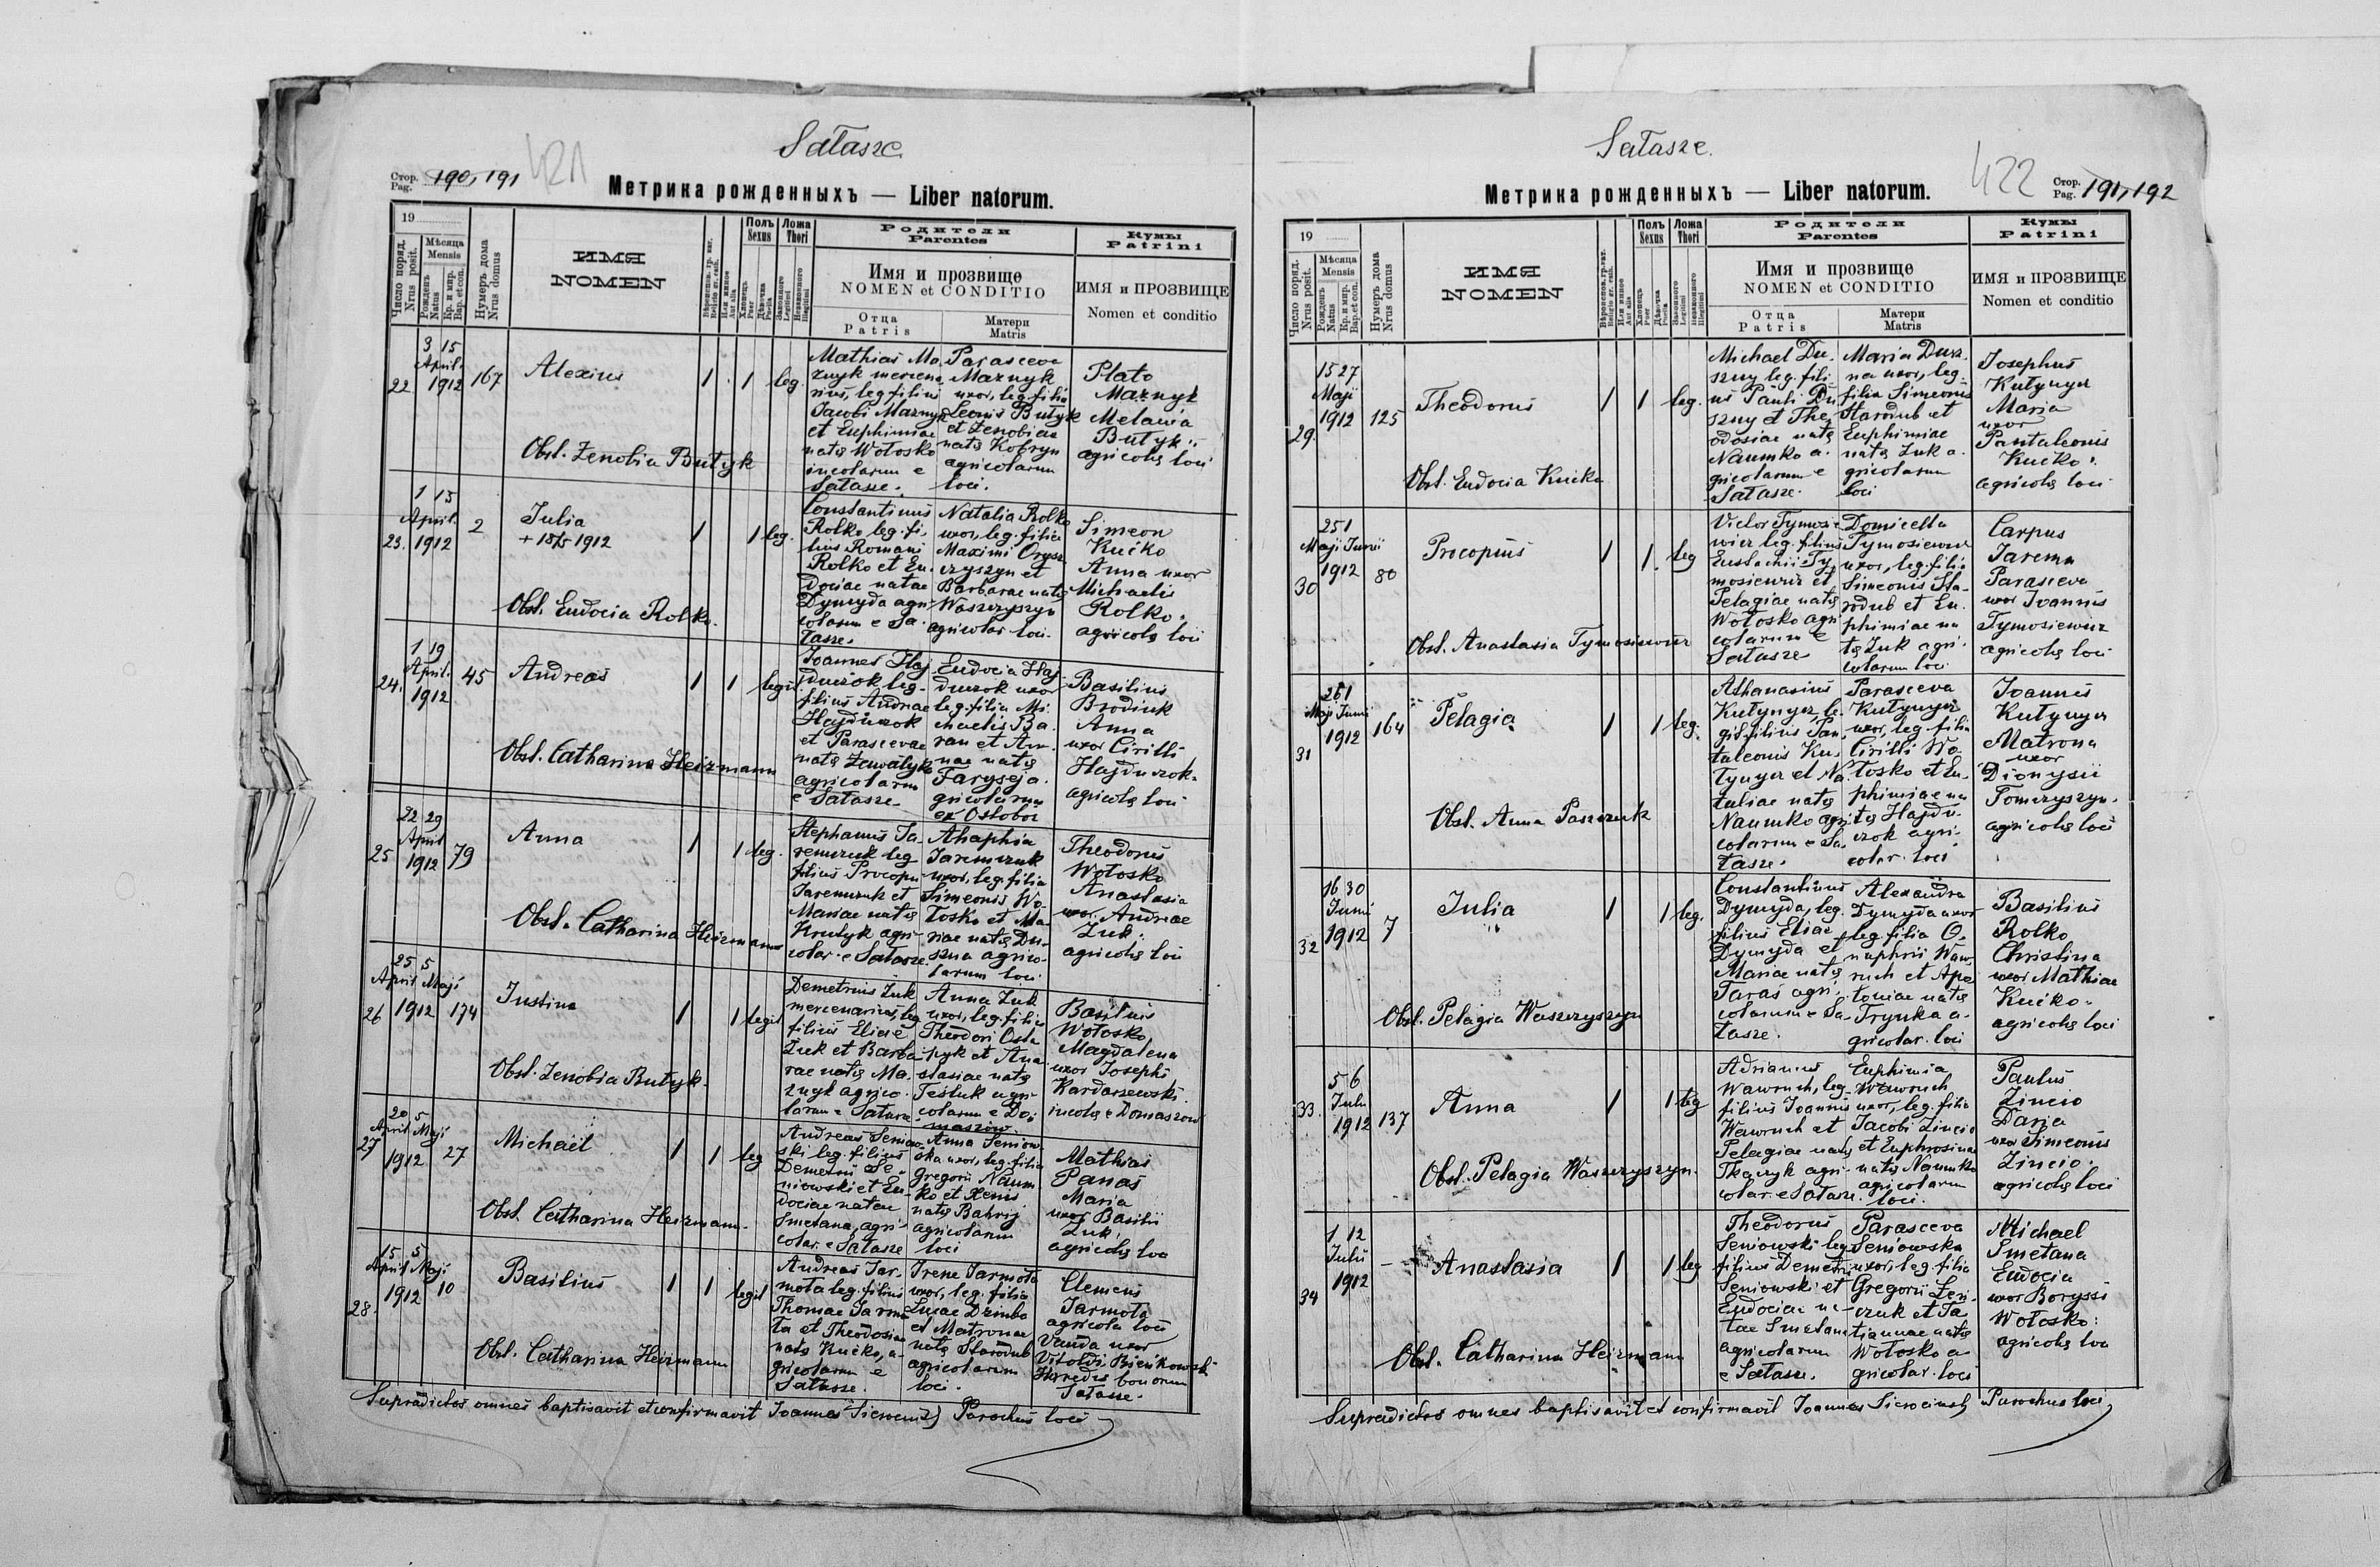 Sałasze
421
Стор. Pag. 190, 191
Метрика рожденныхъ — Liber natorum.
19
Число поряд. Nrus posit.
Мѣсяца Mensis
Рожденъ Natus
Кр. и мир. Bap. et con.
Нумеръ дома Nrus domus
ИМЯ
NOMEN
Вѣроиспов. гр. кат. Religio gr. cath.
Или инное Aut alia
Полъ Sexus
Хлопецъ Puer
Дѣвочка Puella
Ложа Thori
Законного Legitimi
Незаконного Illegitimi
Родители
Parentes
Имя и прозвище
NOMEN et CONDITIO
Отца
Patris
Матери
Matris
Кумы
Patrini
ИМЯ и ПРОЗВИЩЕ
Nomen et conditio
22
3 15
April.
1912
167
Alexius
1
1
leg.
Obst. Zenobia Butyk
Mathias Ma-
znyk mercena
rius, leg. filius
Jacobi Maznyk
et Euphimiae
natis Wołosko
incolarum e
Sałasze.
Parasceva
Maznyk
uxor, leg. filia
Leonis Butyk
et Zenobiae
natis Kobryn
agricolarum
loci.
Plato
Maznyk
Melania
Butyk
agricolis loci
23.
1 15
April.
1912
2
Julia
+ 18/5 1912
1
1
leg.
Obst. Eudocia Rolko.
Constantinus
Rolko leg. fi-
lius Romani
Rolko et Eu-
dociae natae
Dymyda agri-
colarum e Sa-
łasze.
Natalia Rolko
uxor, leg. filia
Maximi Orysz
czyszyn et
Barbarae natis
Waszczyszyn
agricolar. loci.
Simeon
Kućko
Anna uxor
Michaelis
Rolko.
agricolis loci
24.
1 19
April.
1912
45
Andreas
1
1
legit.
Obst. Catharina Heizmann
Joannes Haj-
duczok leg.
filius Andreae
Hajduczok
et Parascevae
natis Zawałyk
agricolarum
e Sałasze
Eudocia Haj
duczok uxor
leg. filia Mi-
chaelis Ba-
ran et An-
nae natis
Farysej a-
gricolarum
ex Ostobor
Basilius
Brodiuk
Anna
uxor Cirilli
Hajduczok.
agricolis loci
25
22 29
April
1912
79
Anna
1
1
leg.
Obst. Catharina Heizmann
Stephanus Ja-
remczuk leg
filius Procopii
Jaremczuk et
Mariae natis
Krutyk agri-
colar. e Sałasze.
Ahaphia
Jaremczuk
uxor, leg. filia
Simeonis Wo-
łosko et Ma-
riae natis Du-
szna agrico-
larum loci.
Theodorus
Wołosko
Anastasia
uxor Andreae
Żuk.
agricolis loci
26
25 5
April Maji
1912
174
Justina
1
1
legit
Obst. Zenobia Butyk.
Demetrius Żuk
mercenarius, leg
filius Eliae
Żuk et Barba-
rae natis Ma-
znyk agrico-
Anna Żuk
uxor, leg. filia
Theodori Osta
pyk et Ana
stasiae natis
Teśluk agri-
colarum e Do-
maszów.
Basilius
Wołosko
Magdalena
uxor Josephi
Kardaszewski
incolis e Domaszów
27
20 5
April Maji
1912
27
Michael
1
1
leg
Obst. Catharina Heizmann.
Andreas Seniow-
ski leg. filius
Demetrii Se-
niowski et Eu-
dociae natae
Smetana, agri-
colar. e Sałasze
Anna Seniow
ska uxor, leg. filia
Gregorii Naum-
ko et Xenis
natis Bahrij
agricolarum
loci
Mathias
Panas
Maria
uxor Basilii
Żuk,
agricolis loci
28.
15 5
April Maji
1912
10
Basilius
1
1
legit
Obst. Catharina Heizmann
Andreas Jar-
mota leg. filius
Thomae Jarmo
ta et Theodosiae
natis Kućko, a-
gricolarum e
Sałasze.
Irene Jarmota
uxor, leg. filia
Lucae Dziuba
et Matronae
natis Starodub
agricolarum
loci.
Clemens
Jarmota
agricola loci
Vanda uxor
Vitoldi Bieńkowski
Heredis bonorum
Sałasze.
Supradictos omnes baptisavit et confirmavit Joannes Sierociński Parochus loci
Sałasze.
422
Стор. Pag. 191, 192
Метрика рожденныхъ — Liber natorum.
19
Число поряд. Nrus posit.
Мѣсяца Mensis
Рожденъ Natus
Кр. и мир. Bap. et con.
Нумеръ дома Nrus domus
ИМЯ
NOMEN
Вѣроиспов. гр. кат. Religio gr. cath.
Или инное Aut alia
Полъ Sexus
Хлопецъ Puer
Дѣвочка Puella
Ложа Thori
Законного Legitimi
Незаконного Illegitimi
Родители
Parentes
Имя и прозвище
NOMEN et CONDITIO
Отца
Patris
Матери
Matris
Кумы
Patrini
ИМЯ и ПРОЗВИЩЕ
Nomen et conditio
29.
15 27
Maji
1912
125
Theodorus
1
1
leg.
Obst. Eudocia Kućka
Michael Du-
szny leg. fili-
us Pauli Du
szny et The-
odosiae natis
Naumko a-
gricolarum e
Sałasze.
Maria Dusz-
na uxor, leg.
filia Simeonis
Starodub et
Euphimiae
natis Żuk a-
gricolarum
loci
Josephus
Kutynyer
Maria
uxor
Pantaleonis
Kućko.
agricolis loci
30
25 1
Maji Junii
1912
80
Procopius
1
1.
leg
Obst. Anastasia Tymosiewicz
Victor Tymosie
wicz leg. filius
Eustachii Ty-
mosiewicz et
Pelagiae natis
Wołosko agri
colarum e
Sałasze
Domicella
Tymosiewicz
uxor, leg. filia
Simeonis Sta-
rodub et Eu-
phimiae na
tis Żuk agri-
colarum loci
Carpus
Jarema
Parasceva
uxor Joannis
Tymosiewicz
agricolis loci
31
26 1
Maji Junii
1912
164
Pelagia
1
1
leg.
Obst. Anna Paszczuk
Athanasius
Kutynyer, le-
git. filius Pan-
taleonis Ku-
tynyer et Na-
taliae natis
Naumko agri
colarum e Sa-
łasze.
Parasceva
Kutynyer
uxor, leg. filia
Cirilli Wo-
łosko et Eu-
phimiae na
tis Hajdu-
czok agri-
colar. loci
Joannes
Kutynyer
Matrona
uxor
Dionysii
Tomczyszyn.
agricolis loci
32
16 30
Junii
1912
7
Julia
1
1
leg.
Obst. Pelagia Waszczyszyn
Constantinus
Dymyda, leg.
filius Eliae
Dymyda et
Mariae natis
Taras agri-
colarum e Sa-
łasze.
Alexandra
Dymyda uxor
leg. filia O-
nuphrii Waw
ruch et Apo
loniae natis
Trynka a-
gricolar. loci
Basilius
Rolko
Christina
uxor Mathiae
Kućko.
agricolis loci
33.
5 6
Julii
1912
137
Anna
1
1
leg
Obst. Pelagia Waszczyszyn.
Adrianus
Wawruch, leg.
filius Joannis
Wawruch et
Pelagiae natis
Tkaczyk agri-
colar. e Sałasze.
Euphimia
Wawruch
uxor, leg. filia
Jacobi Zincio
et Euphrosinae
natis Naumko
agricolarum
loci.
Paulus
Zincio
Daria
uxor Simeonis
Zincio.
agricolis loci
34
1 12
Julii
1912
—
Anastasia
1
1
leg
Obst. Catharina Heizmann
Theodorus
Seniowski leg
filius Demetrii
Seniowski et
Eudociae na-
tae Smetana
agricolarum
e Sałasze.
Parasceva
Seniowska
uxor, leg. filia
Gregorii Sen-
czuk et Ta-
tiannae natis
Wołosko a-
gricolar. loci
Michael
Smetana
Eudocia
uxor Boryssi
Wołosko:
agricolis loci
Supradictos omnes baptisavit et confirmavit Joannes Sierociński Parochus loci